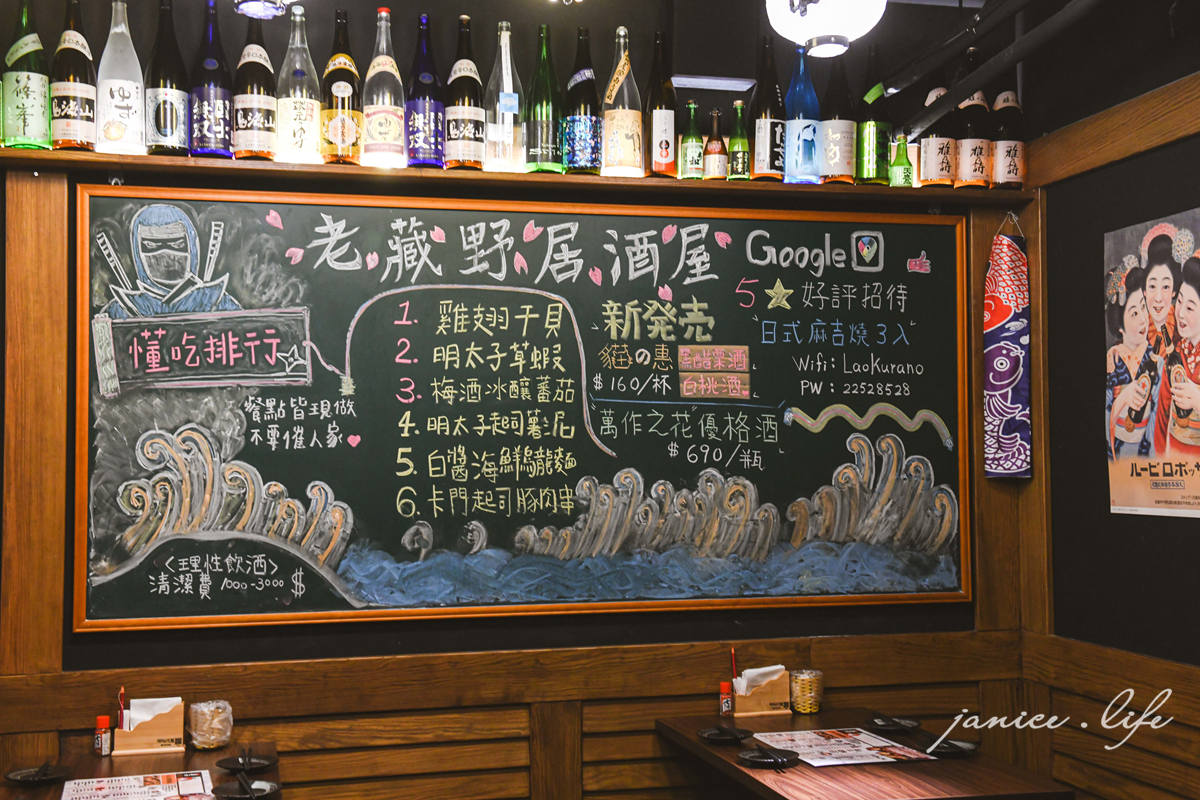 老藏野居酒屋
Google
5★好評招待
"日式麻吉燒3入"
Wifi: LaoKurano
PW: 22528528
懂吃排行
餐點皆現做
不要催人家
1. 雞翅干貝
2. 明太子草蝦
3. 梅酒冰釀蕃茄
4. 明太子起司薯泥
5. 白醬海鮮烏龍麵
6. 卡門起司豚肉串
新発売
の惠
$160/杯
白桃酒
"萬作之花"優格酒
$690/瓶
<理性飲酒>
清潔費 1000-3000 $
鳥海山
ゆず
鳥海山
鳥海山
janice.life